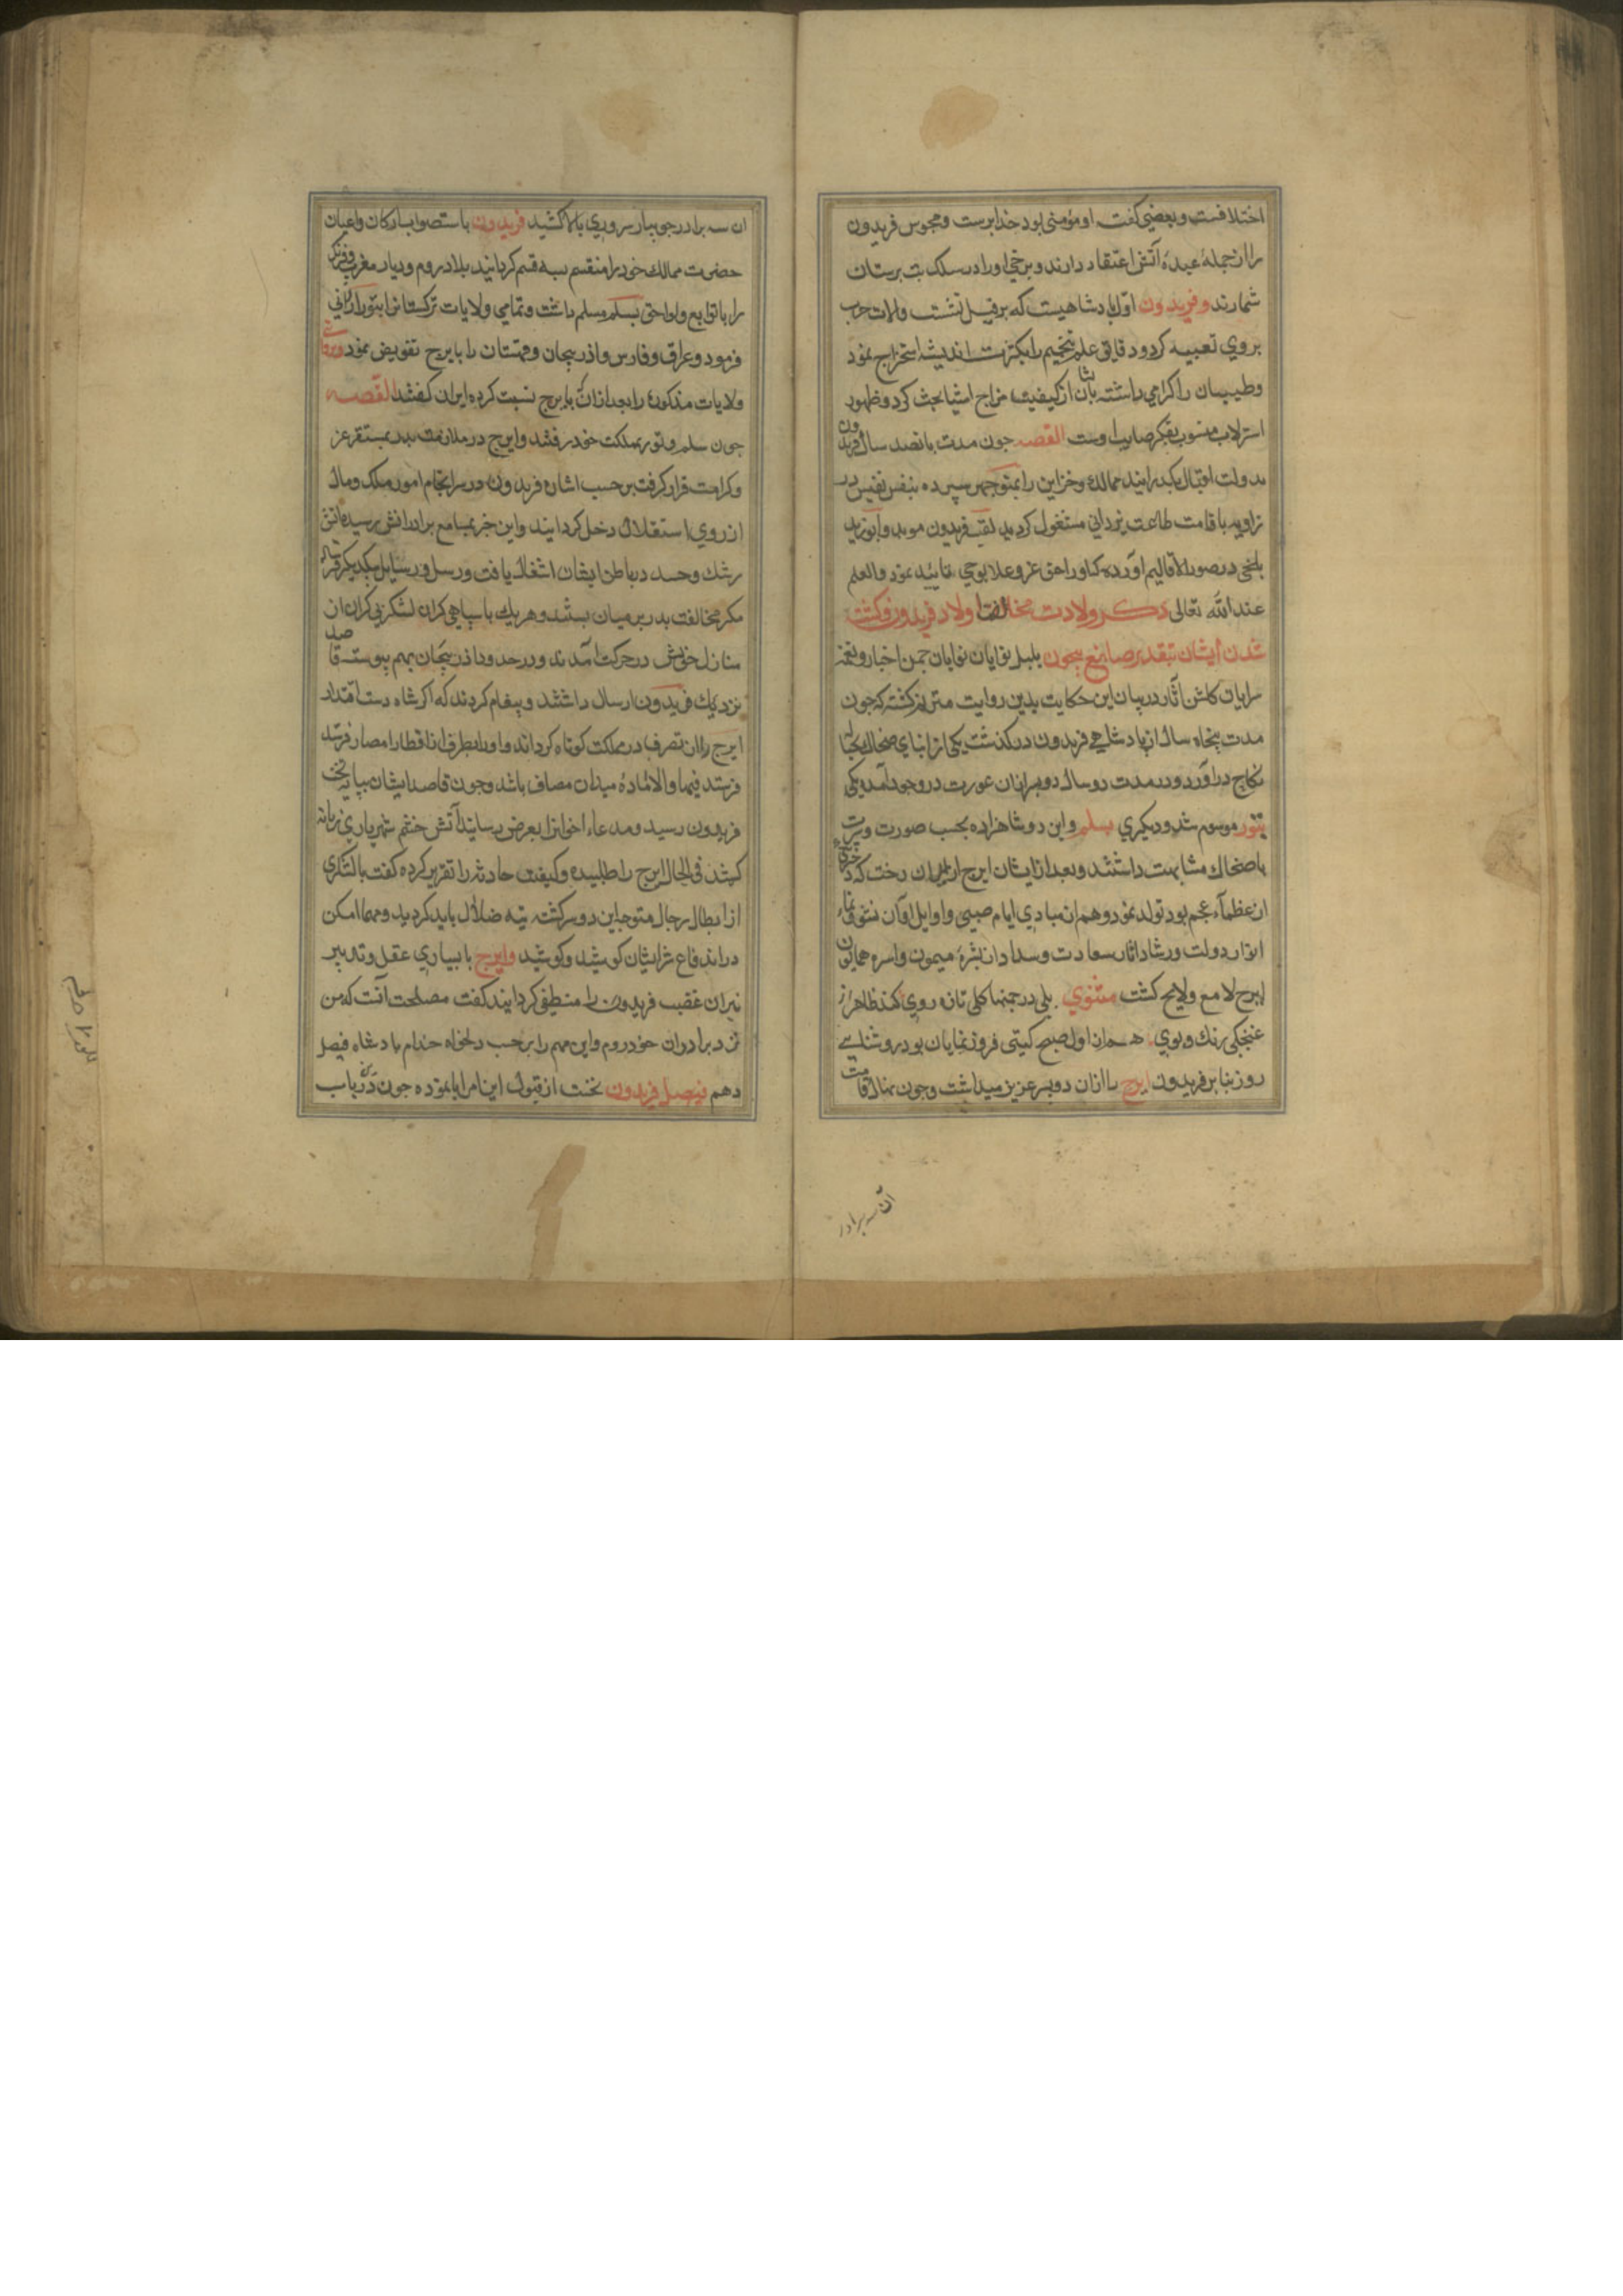 اختلافست وبعضی گفت او مؤمنی بود خدا پرست ومجوس فریدون
را از جملهٔ عبدهٔ آتش اعتقاد دارند وبرخی او را در سلک بت پرستان
شمارند وفریدون اول پادشاهیست که بر فیل نشست والات حرب
بر وی تعبیه کرد ودقایق علم تنجیم را بکثرت اندیشه استخراج نمود
وطبیبان را کرامی داشته از کیفیت مزاج اشیا بحث کرد وظهور
استرلاب منسوب بفکر صایب اوست القصه جون مدت پانصد سال فریدون
بدولت اقبال بکذرانید ممالک وخزاین را بمنوجهر سپرده بنفس نفیس در
زاویه باقامت طاعت یزدانی مشغول کردید لقب فریدون موبد وابوزید
بلخی در صور الاقالیم آورده که او را حق عز وعلا بوحی تایید نمود والعلم
عند الله تعالی ذکر ولادت مخالفت اولاد فریدون وکشته
شدن ایشان بتقدیر صانع بیجون بلبل نوایان چمن اخبار ونغمه
سرایان کلشن آثار در بیان این حکایت بدین روایت مترنم کشته که جون
مدت پنجاه سال از پادشاهی فریدون درکذشت یکی از ابنای ضحاک بحباله
نکاح درآورد ودر مدت دو سال دو پسر از ان عورت در وجود آمد یکی
بتور موسوم شد ودیکری بسلم واین دو شاهزاده بحسب صورت وسیرت
با ضحاک مشابهت داشتند وبعد از ایشان ایرج از ایران دخت که دختر یکی
از عظماء عجم بود تولد نمود وهم از مبادی ایام صبی واوایل اوان نشو ونما
انوار دولت ورشاد اثار سعادت وسداد از بشرهٔ میمون واسره همایون
ایرج لامع ولایح کشت مثنوی بلی در چمنها کلی تازه روی کند ظاهر از
غنجکی رنک وبوی همان اول صبح کیتی فروز نمایان بود روشنایی
روز بنابر فریدون ایرج را از ان دو پسر عزیز میداشت وجون نهال قامت
ان سه برادر
ان سه برادر در جویبار سروری بالا کشید فریدون باستصواب ارکان واعیان
حضرت ممالک خود را منقسم بسه قسم کردانید بلاد روم ودیار مغرب وفرنک
را با توابع ولواحق بسلم مسلم داشت وتمامی ولایات ترکستان را بتور ارزانی
فرمود وعراق وفارس واذربیجان وقهستان را بایرج تفویض نمود
ولایات مذکوره را بعد از ان بایرج نسبت کرده ایران کفتند القصه
جون سلم وتور بمملکت خود رفتند وایرج در ملازمت پدر بمستقر عز
وکرامت قرار کرفت بر حسب اشاره فریدون در سرانجام امور ملک ومال
از روی استقلال دخل کردانید واین خبر بمسامع برادرانش رسید آتش
رشک وحسد در باطن ایشان اشتعال یافت ورسل ورسایل بیکدیکر
مکر مخالفت پدر بر میان بستند وهر یک با سپاهی کران لشکر بی کران از
منازل خویش در حرکت آمدند ودر حدود اذربیجان بهم پیوسته قاصد
نزدیک فریدون ارسال داشتند وپیغام کردند که اکر شاه دست اقتدار
ایرج را از تصرف در مملکت کوتاه کرداند واو را بطرفی از اقطار امصار
فرستد فبها والا اماده میدان مصاف باشد وجون قاصد ایشان بپایه تخت
فریدون رسید ومدعاء اخوان را بعرض رسانید آتش خشم شهریاری زبانه
کشید فی الحال ایرج را طلبیده وکیفیت حادثه را تقریر کرده کفت با لشکری
از ابطال رجال متوجه این دو سرکشته تیه ضلال باید کردید ومهما امکن
در اندفاع شر ایشان کوشید وایرج با بیاری عقل وتدبیر
نیران غضب فریدون را منطفی کردانید کفت مصلحت آنست که من
نزد برادران خود روم واین مهم را بر حسب دلخواه خدام پادشاه فیصل
دهم فیصل فریدون نخست از قبول این امر ابا نموده جون در ان باب